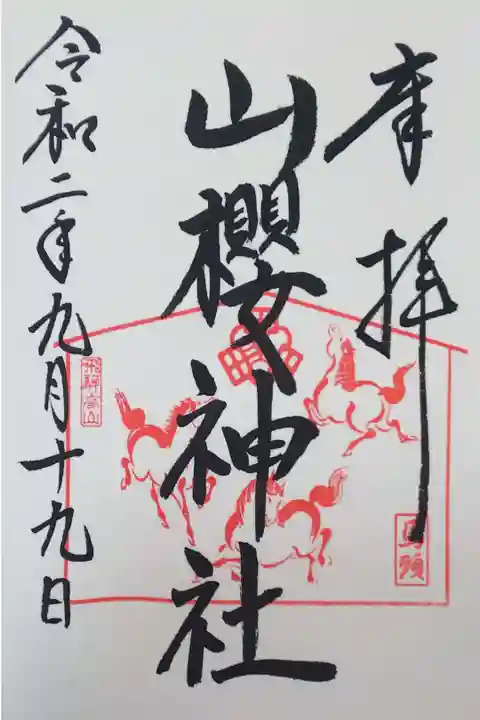 奉拝
山櫻神社
馬頭
飛騨高山
令和二年九月十九日